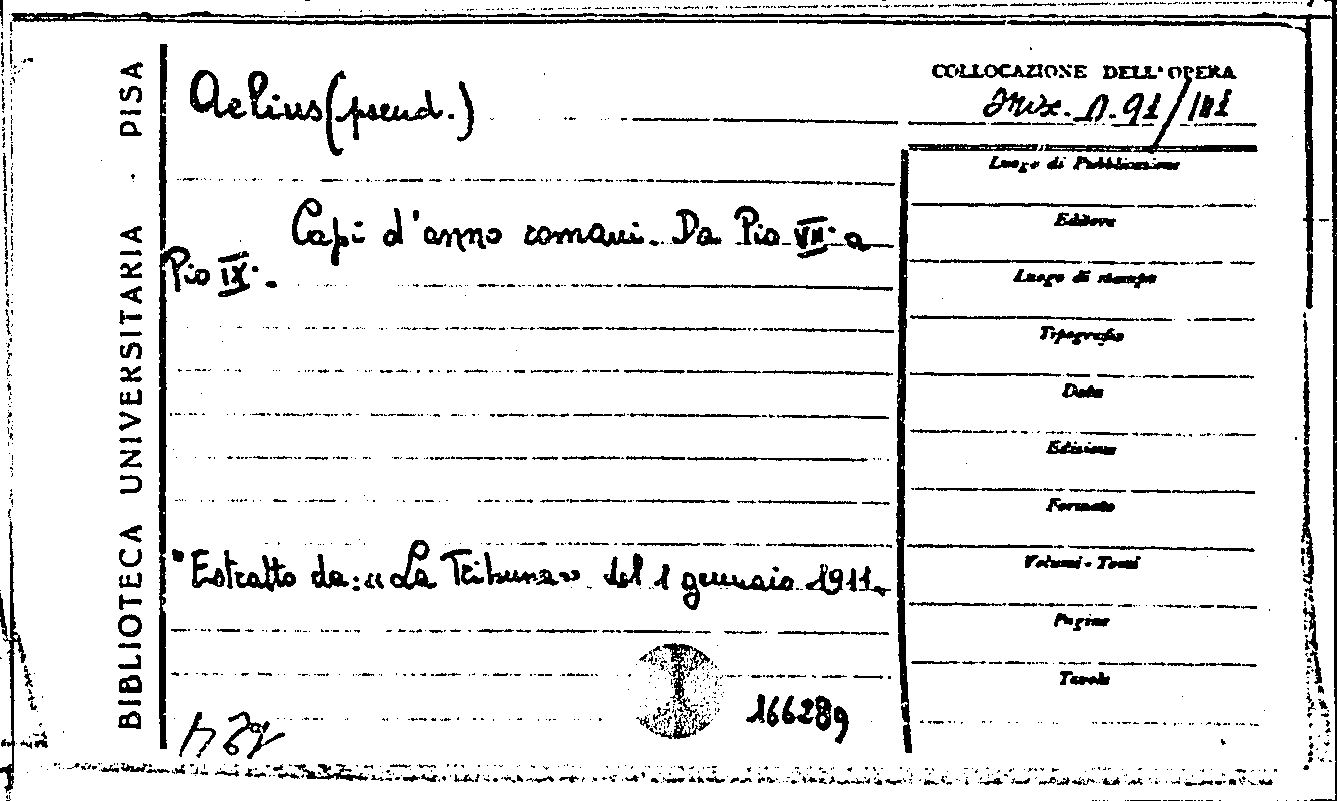 BIBLIOTECA UNIVERSITARIA - PISA
Aelius (pseud.)
Capi d'anno romani. Da Pio VII. a
Pio IX..
"Estratto da: « La Tribuna » del 1 gennaio 1911.
166289
COLLOCAZIONE DELL'OPERA
Misc. n. 91/
Luogo di Pubblicazione
Editore
Luogo di stampa
Tipografia
Data
Edizione
Formato
Volumi - Tomi
Pagine
Tavole